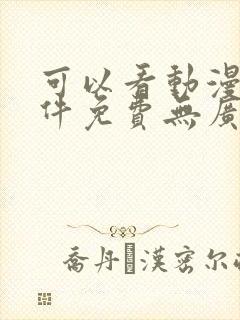 可以看動漫
件免費無廣
喬丹 漢密尔